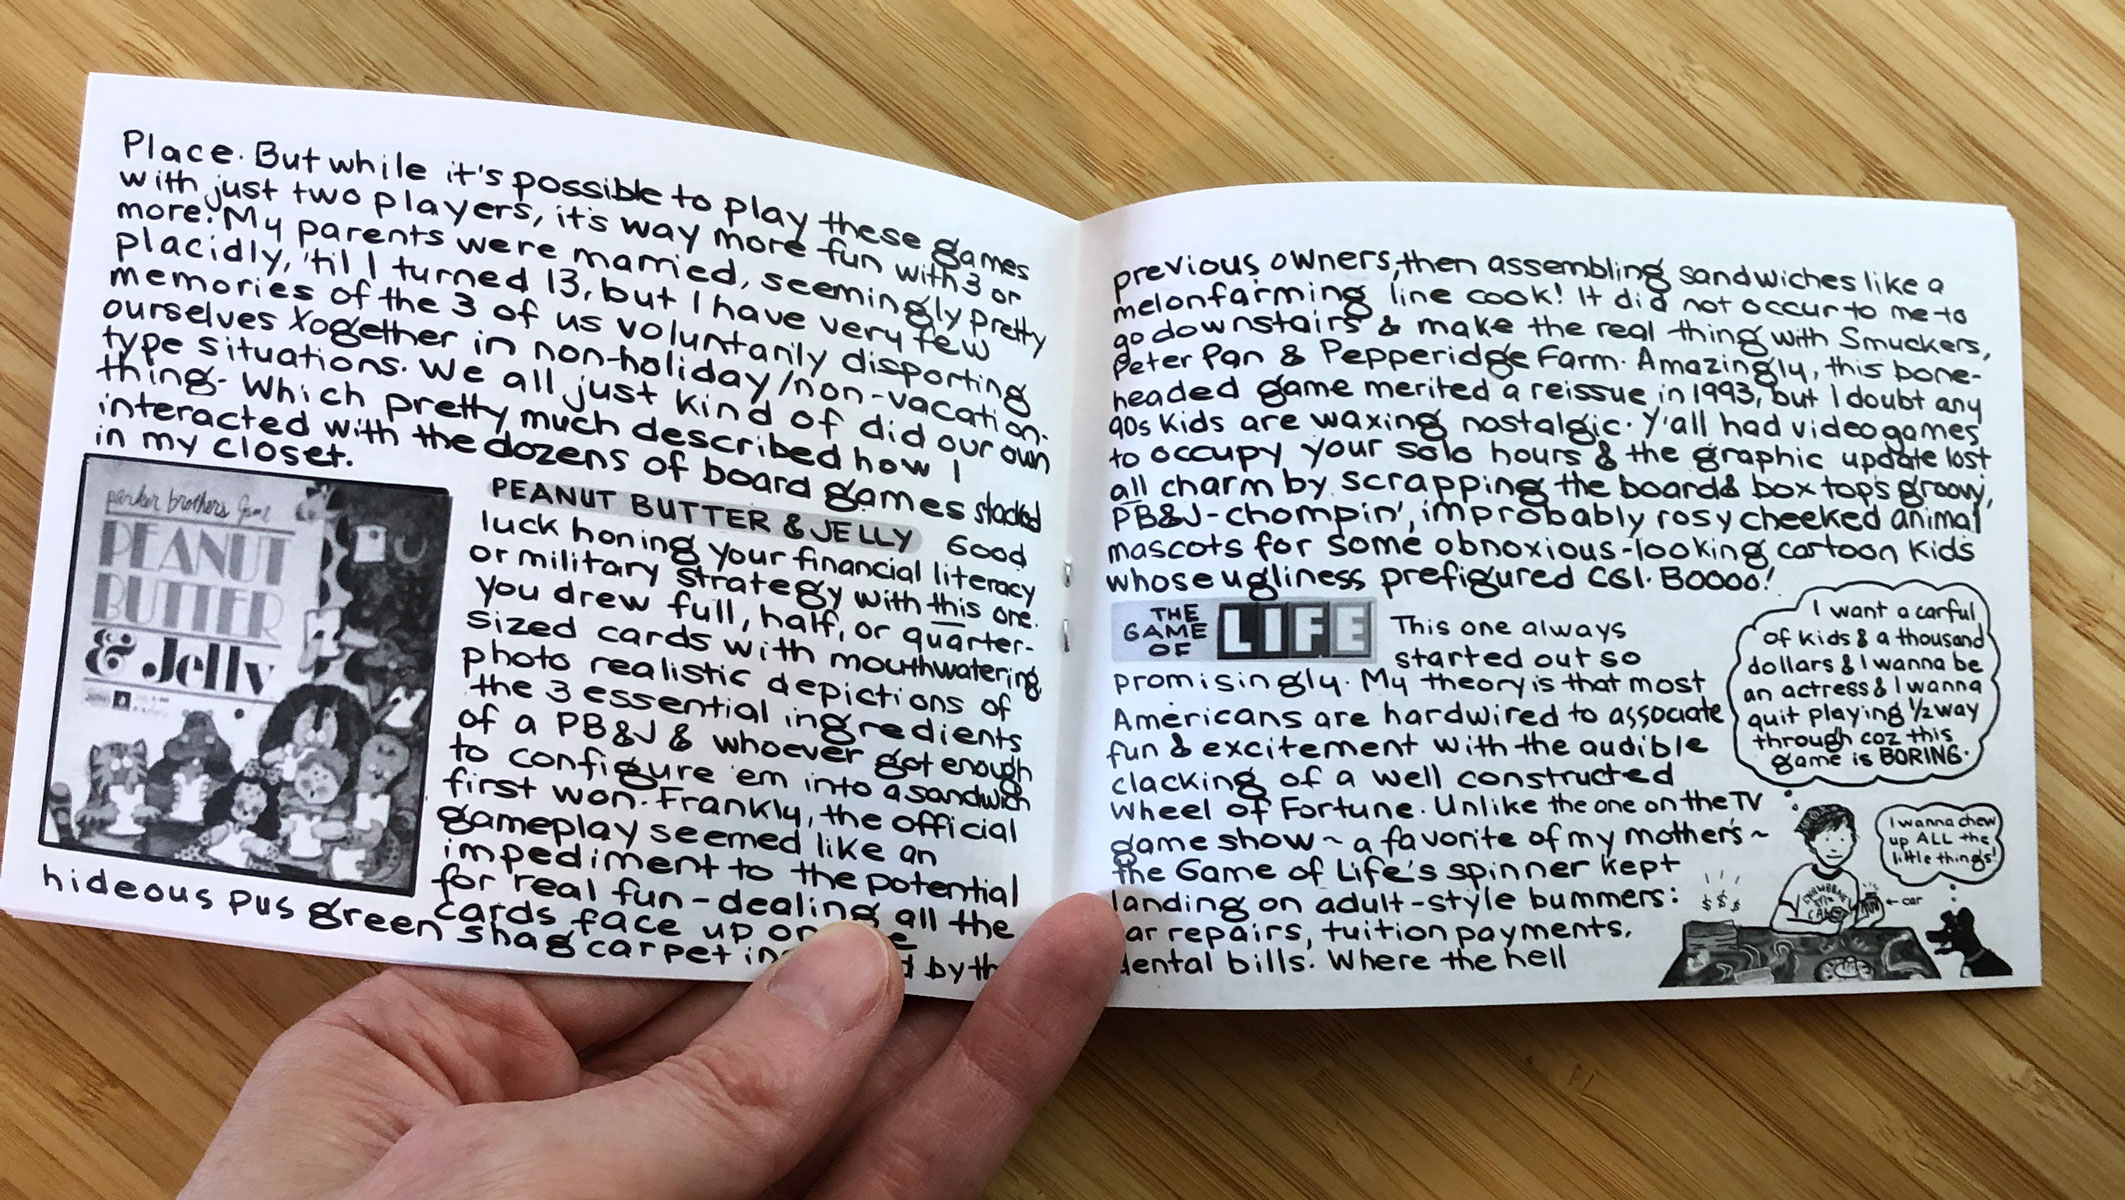 Place. But while it's possible to play these games
with just two players, it's way more fun with 3 or
more. My parents were married, seemingly pretty
placidly, 'til I turned 13, but I have very few
memories of the 3 of us voluntarily disporting
ourselves Xogether in non-holiday/non-vacation-
type situations. We all just kind of did our own
thing. Which pretty much described how I
interacted with the dozens of board games stacked
in my closet.
parker brothers Game
PEANUT
BUTTER
& Jelly
PEANUT BUTTER & JELLY Good
luck honing your financial literacy
or military strategy with this one.
You drew full, half, or quarter-
sized cards with mouthwatering
photo realistic depictions of
the 3 essential ingredients
of a PB&J & whoever got enough
to configure 'em into a sandwich
first won. Frankly, the official
gameplay seemed like an
impediment to the potential
for real fun - dealing all the
cards face up on
hideous pus green shag carpet by th
previous owners, then assembling sandwiches like a
melonfarming line cook! It did not occur to me to
go downstairs & make the real thing with Smuckers,
Peter Pan & Pepperidge Farm. Amazingly, this bone-
headed game merited a reissue in 1993, but I doubt any
90s kids are waxing nostalgic. Y'all had videogames
to occupy your solo hours & the graphic update lost
all charm by scrapping the board & box top's groovy,
PB&J-chompin', improbably rosy cheeked animal
mascots for some obnoxious-looking cartoon kids
whose ugliness prefigured CGI. Boooo!
THE
GAME
OF
LIFE
This one always
started out so
promisingly. My theory is that most
Americans are hardwired to associate
fun & excitement with the audible
clacking of a well constructed
Wheel of Fortune. Unlike the one on the TV
game show ~ a favorite of my mother's ~
the Game of Life's spinner kept
landing on adult-style bummers:
ar repairs, tuition payments,
dental bills. Where the hell
I want a carful
of kids & a thousand
dollars & I wanna be
an actress & I wanna
quit playing 1/2 way
through coz this
game is BORING.
I wanna chew
up ALL the
little things!
$ $ $
← car